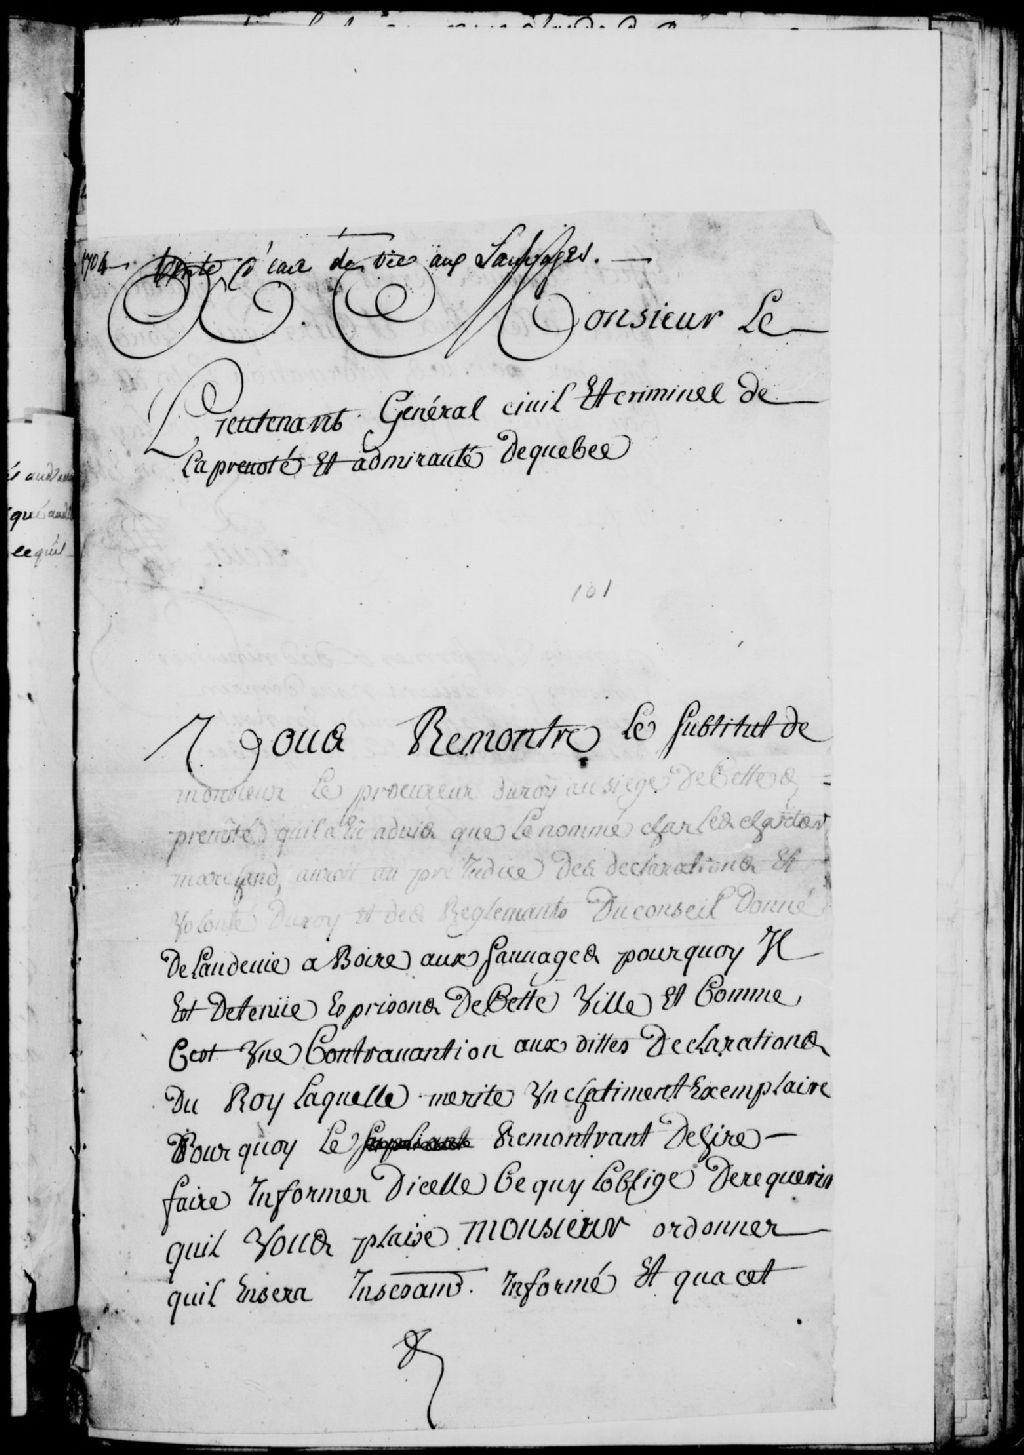 1704. Vente d'eau de vie aux Sauvages.
Monsieur Le
Lieutenant Général civil Et criminel de
La prevoté Et admirauté Dequebec
101
Vous Remontre Le substitut de
monsieur Le procureur duroy ausiege De Cette
prevôté quil a Eté advis que Le nommé charles chardon
marchand, auroit au preIudice Des declarations Et
Volonté Duroy et des Reglemants Duconseil Donné
DeLaudevie a Boire aux sauvages pourquoy Il
Est Detenüe Es prisons De Cette Ville Et Comme
Cest Vne Contravantion aux dittes Declarations
Du Roy Laquelle merite Vn chatiment Exemplaire
Pourquoy Le supliant Remontrant Desire
faire Informer Dicelle Ce quy Loblige Derequerir
quil Vous plaise monsieur ordonner
quil Ensera Incessam. Informé Et qua cet
és aud
qué aud
ce quil